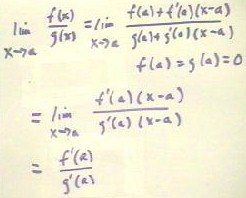 lim x→a f(x)/g(x) = lim x→a (f(a)+f'(a)(x-a))/(g(a)+g'(a)(x-a))
f(a)=g(a)=0
= lim x→a (f'(a)(x-a))/(g'(a)(x-a))
= f'(a)/g'(a)